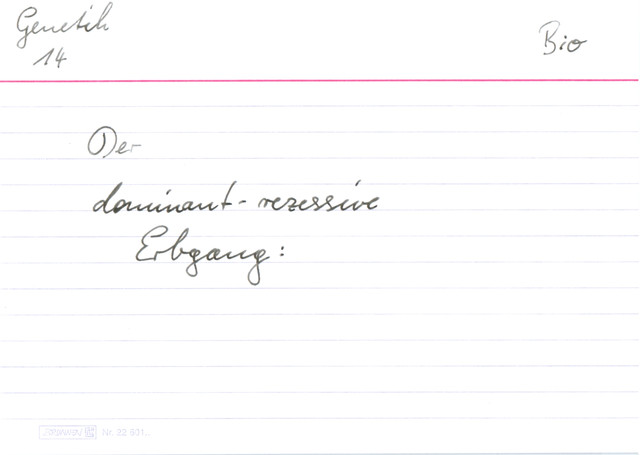 Genetik
14
Bio
Der
dominant-rezessive
Erbgang:
Nr. 22 901